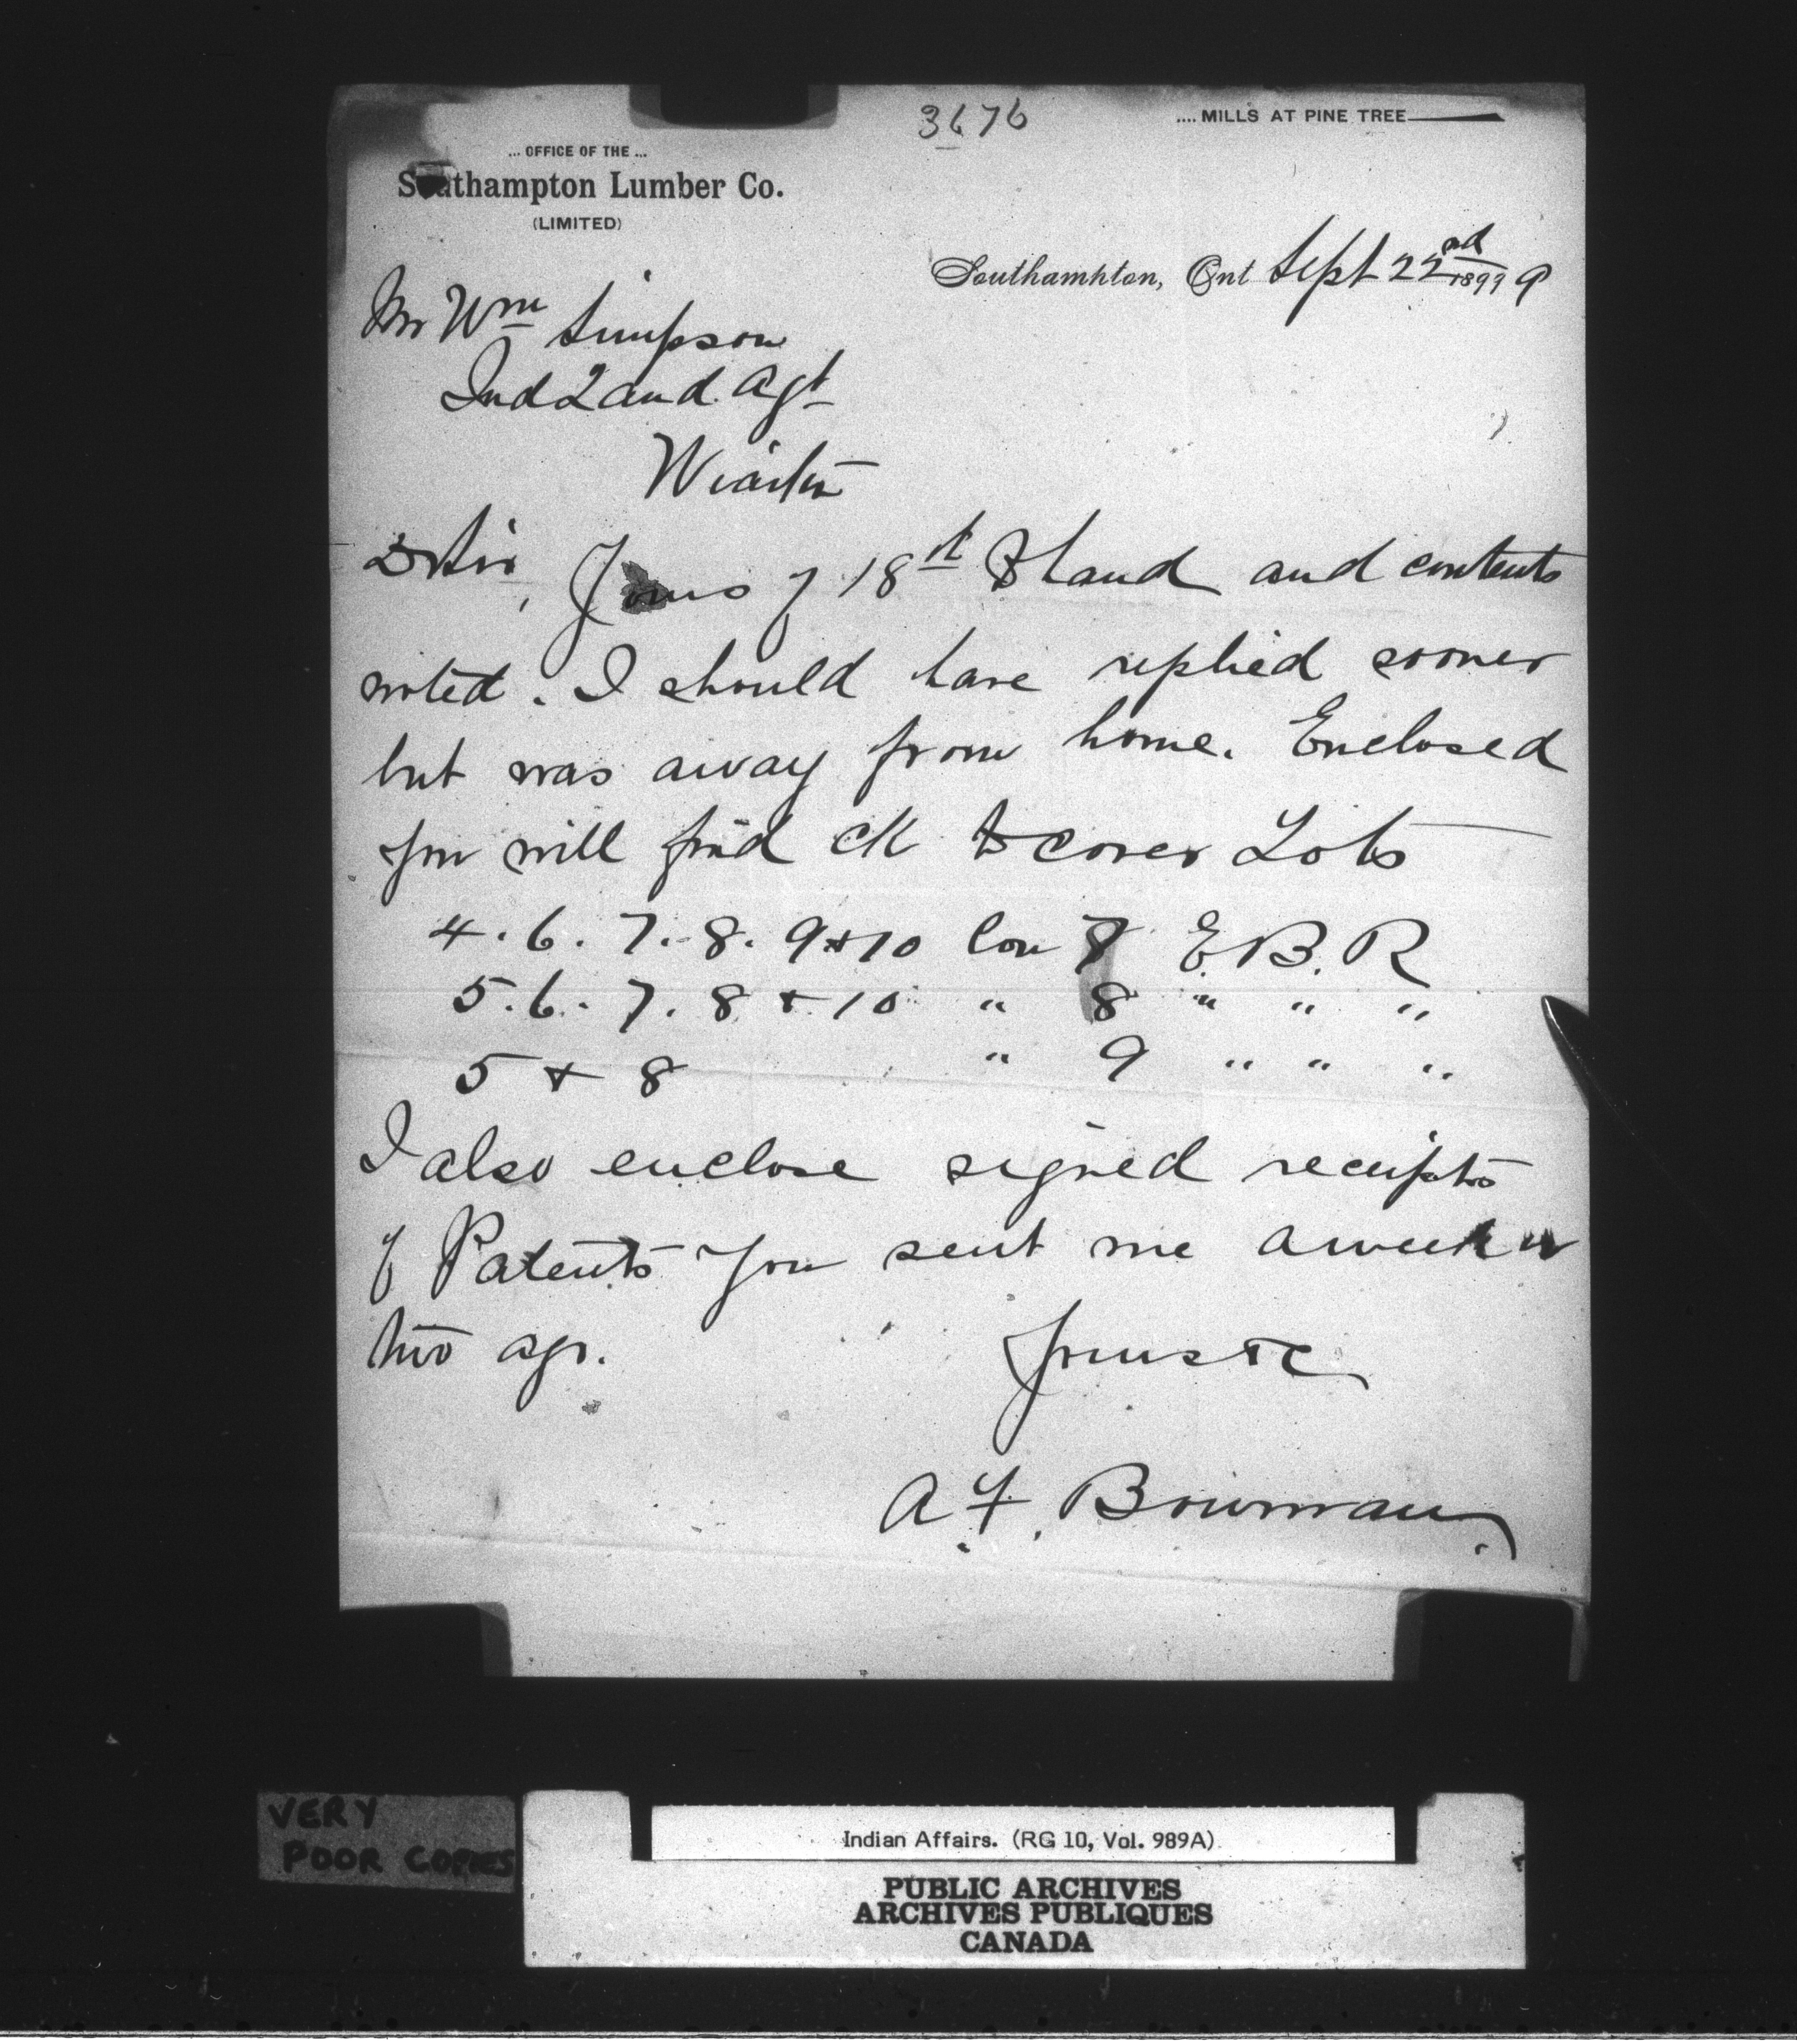 3676
.... MILLS AT PINE TREE
... OFFICE OF THE ...
Southampton Lumber Co.
(LIMITED)
Southampton, Ont Sept 22nd 1899
Mr Wm Simpson
Ind Land Agt
Wiarton
D Sir,
Yours of 18th to hand and contents
noted. I should have replied sooner
but was away from home. Enclosed
you will find ck to cover Lots
4. 6. 7. 8. 9 + 10 Con 7 E. B. R
5. 6. 7. 8 + 10 " 8 " " "
5 + 8 " 9 " " "
I also enclose signed receipts
of Patents you sent me a week or
two ago.
Yours &c
A F. Bowman
VERY
POOR COPIES
Indian Affairs. (RG 10, Vol. 989A)
PUBLIC ARCHIVES
ARCHIVES PUBLIQUES
CANADA